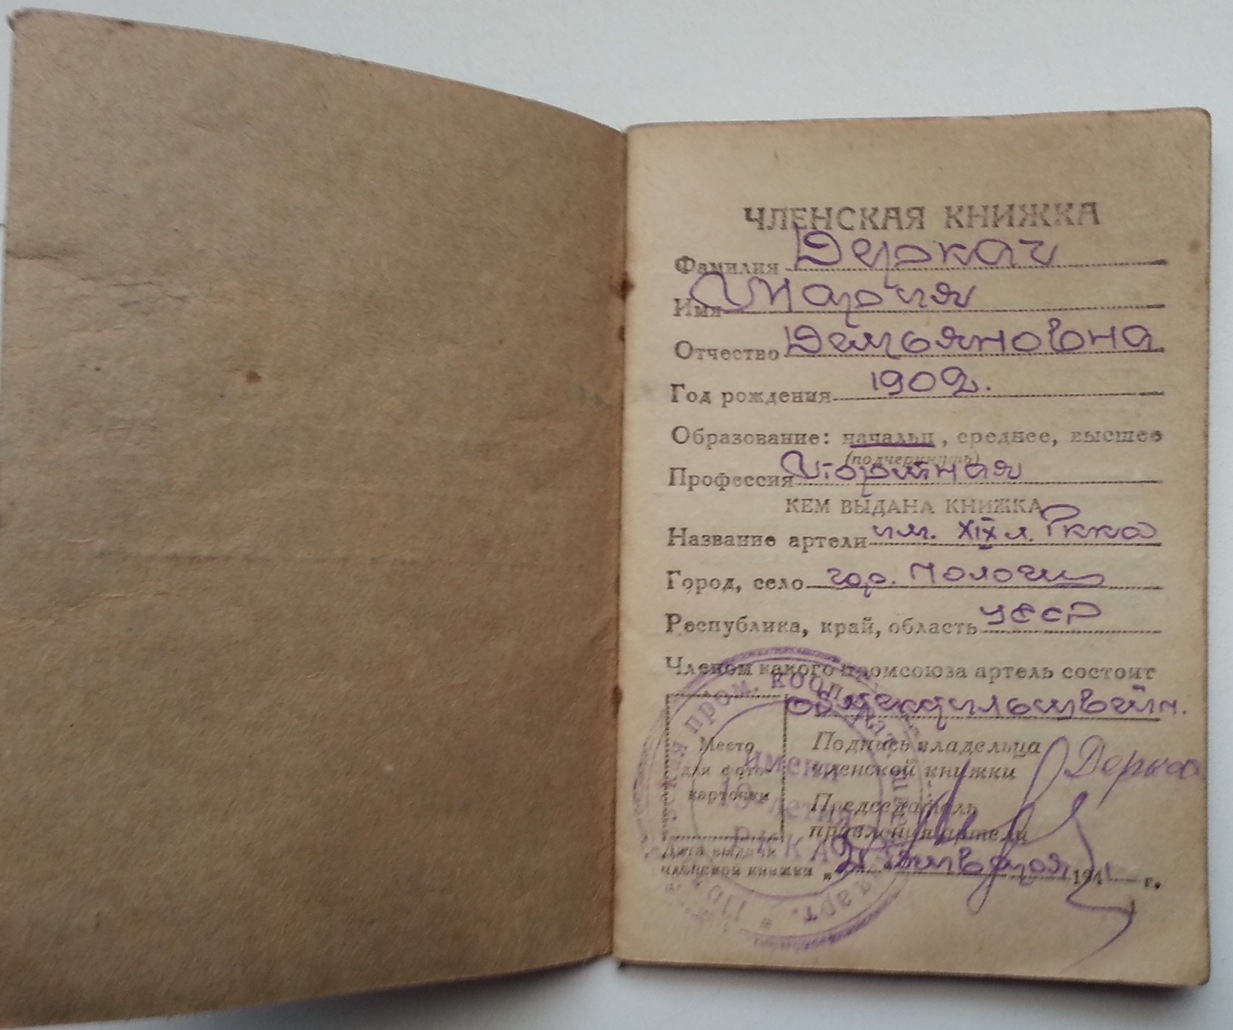 ЧЛЕНСКАЯ КНИЖКА
Фамилия Деркач
Имя Мария
Отчество Демьяновна
Год рождения 1902.
Образование: начальн, среднее, высшее
(подчеркнуть)
Профессия Портная
КЕМ ВЫДАНА КНИЖКА
Название артели им. XIX л. Ркка
Город, село гор. Пологи
Республика, край, область УССР
Членом какого промсоюза артель состоит
Облтекстильшвейн.
Место
для фото-
карточки
Подпись владельца
членской книжки
Председатель
правления артели
Дата выдачи
членской книжки „21" января 1941 г.
пром. кооперат.
имени
19-летия
РККА
арт.